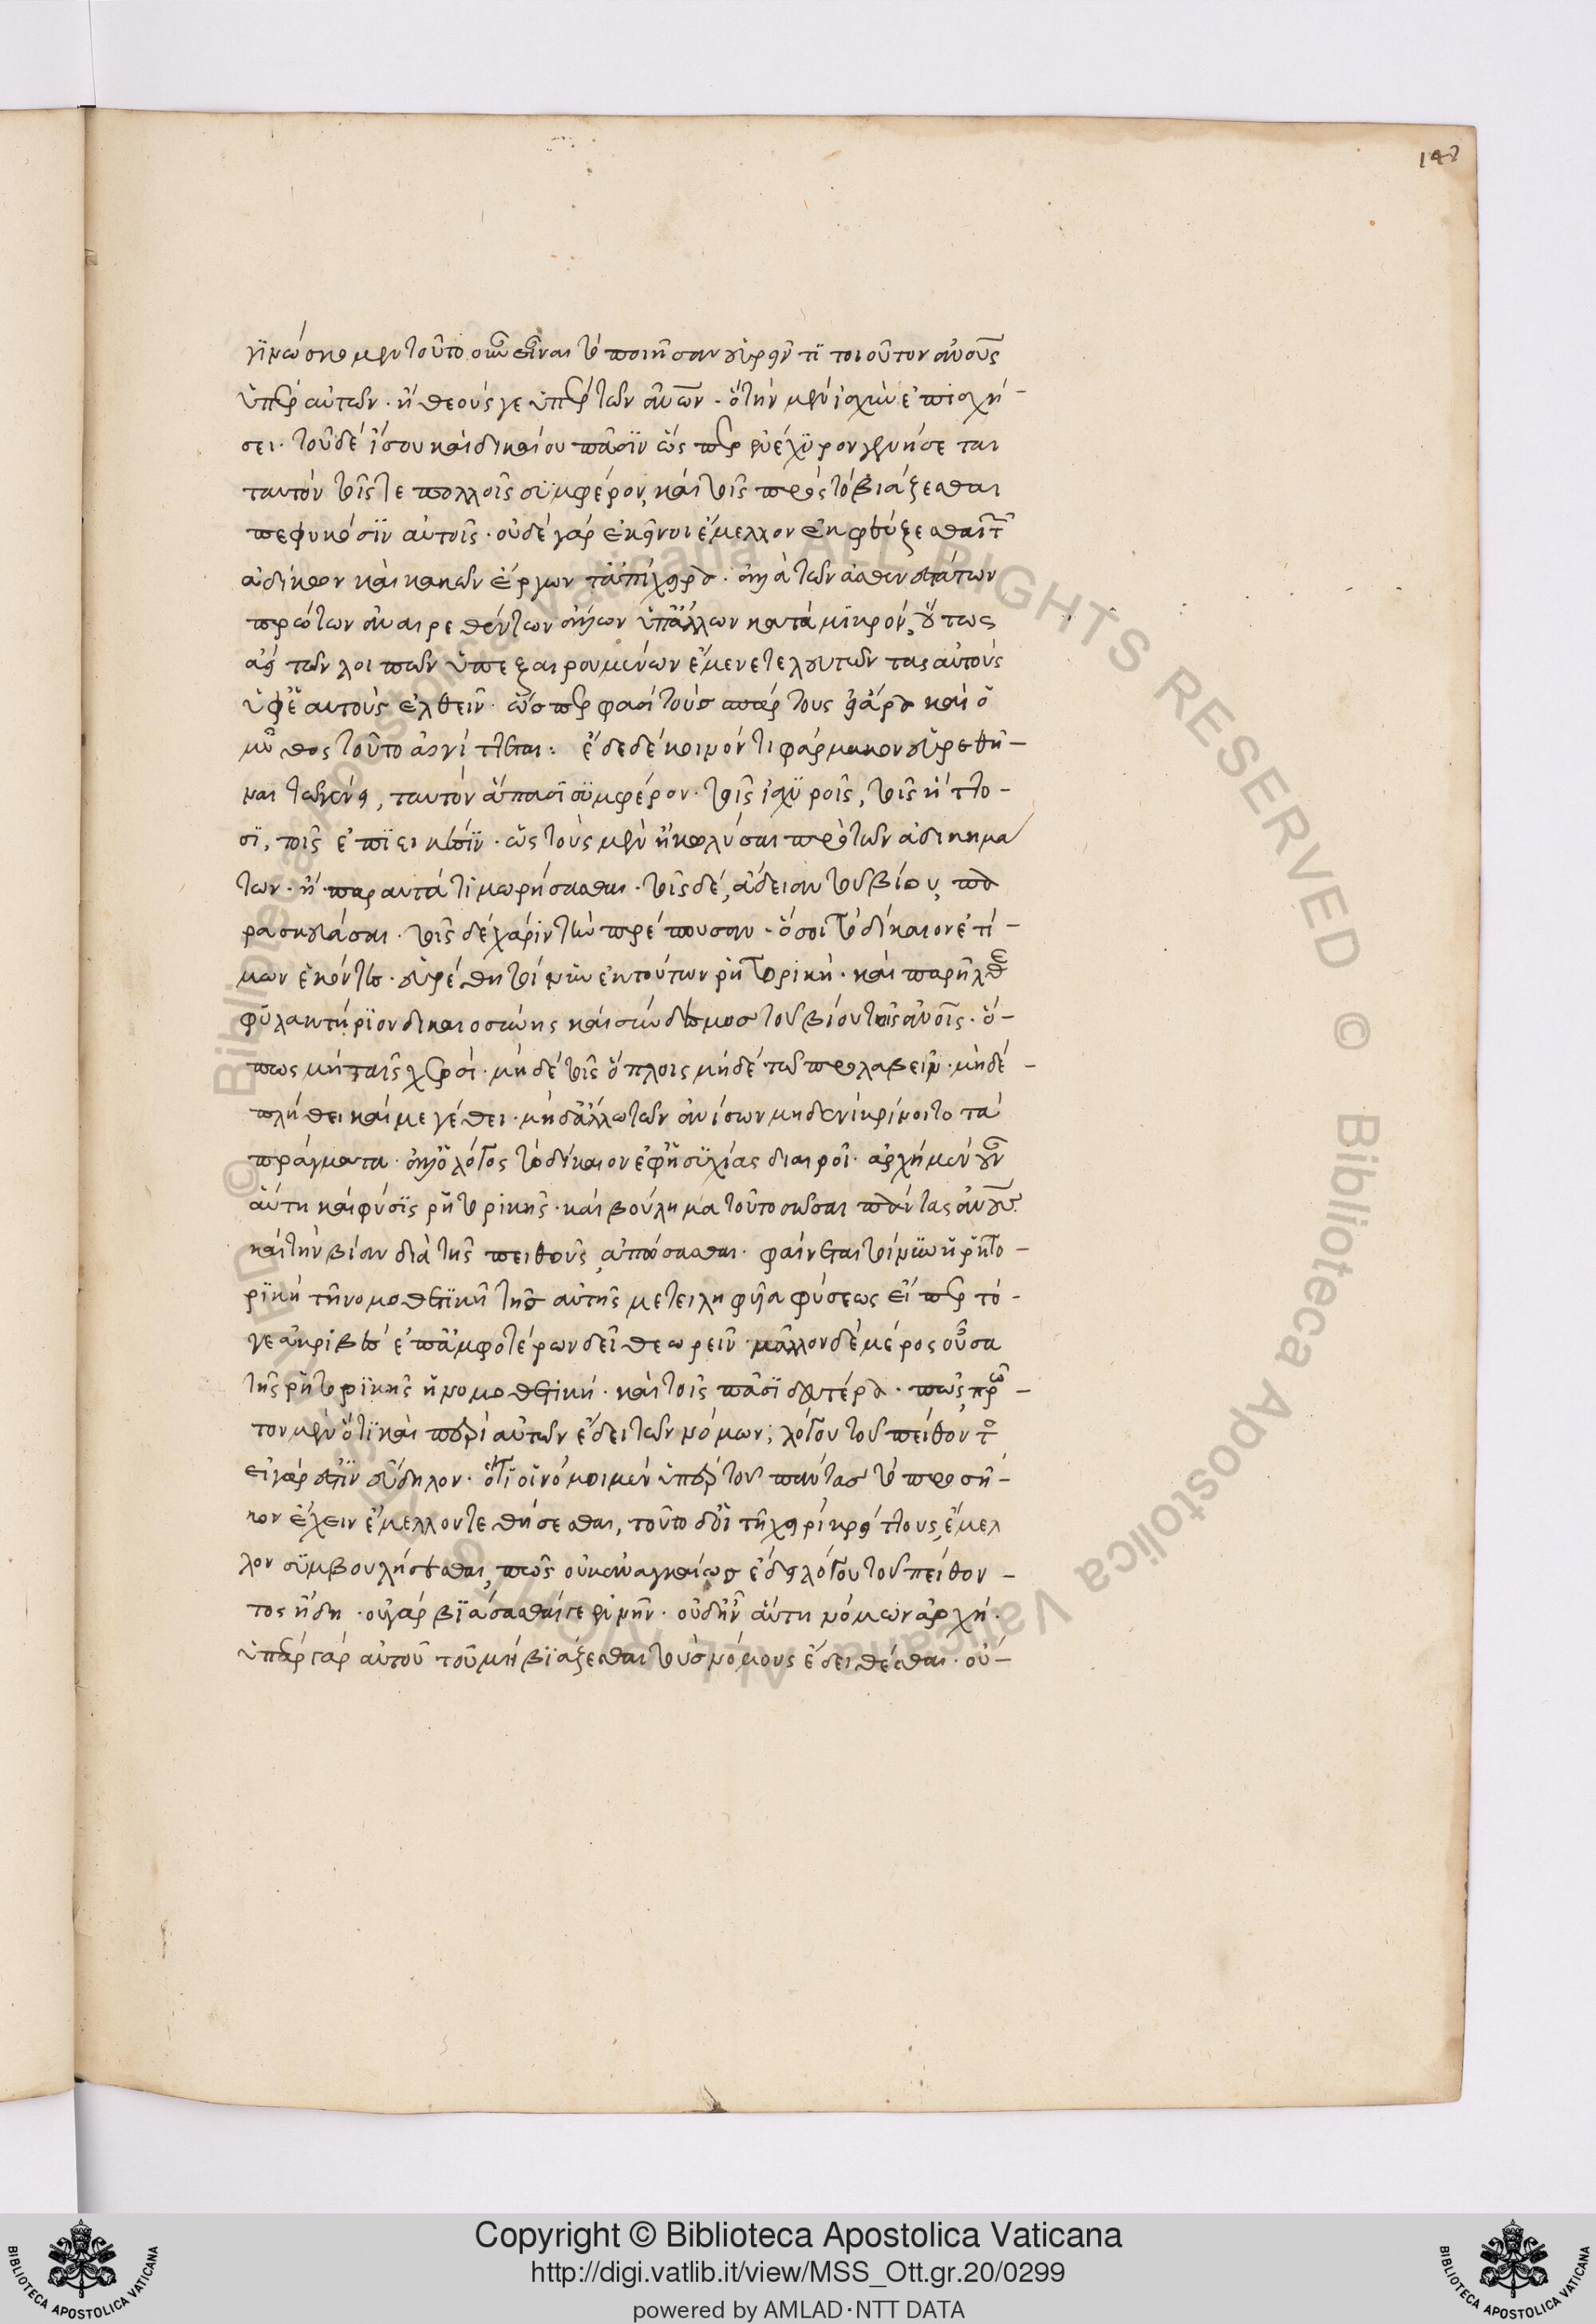 148
γινώσκομεν τοῦτο οὖν εἶναι τὸ ποιῆσαν εὑρεῖν τι τοιοῦτον ἀνους
ὑπὲρ αὑτῶν. ἢ θεούς γε ὑπὲρ τῶν ἀνων. ὃ τὴν μὲν ἰσχὺν ἐπισχή-
σει. τοῦ δὲ ἴσου καὶ δικαίου πᾶσιν ὥσπερ ἐνέχυρον γενήσεται
ταυτὸν τοῖς τε πολλοῖς συμφέρον, καὶ τοῖς πρὸς τὸ βιάζεσθαι
πεφυκόσιν αὐτοῖς. οὐδὲ γὰρ ἐκεῖνοι ἔμελλον ἐκφεύξεσθαι τ
ἀδίκων καὶ κακῶν ἔργων τἀπίχειρα. ἀλλὰ τῶν ἀσθενεστάτων
πρώτων ἀναιρεθέντων ἀεὶ ὑπ' ἄλλων κατὰ μικρὸν, οὕτως
ἀεὶ τῶν λοιπῶν ὑπεξαιρουμένων ἔμενε τελευτῶντας αὐτοὺς
ὑφ' ἑαυτοὺς ἐλθεῖν. ὥσπερ φασὶ τοὺς σπαρτοὺς καὶ ὁ
μῦθος τοῦτο αἰνίττεται: ἔδει δὲ κοινόν τι φάρμακον εὑρεθῆ-
ναι τῷ γένει, ταυτὸν ἅπασι συμφέρον. τοῖς ἰσχυροῖς, τοῖς ἥττο-
σι, τοῖς ἐπιεικέσιν. ὡς τοὺς μὲν ἢ κωλῦσαι πρὸ τῶν ἀδικημά
των. ἢ παραυτὰ τιμωρήσασθαι. τοῖς δὲ, ἄδειαν τοῦ βίου, πα
ρασκευάσαι. τοῖς δὲ χάριν τὴν πρέπουσαν. ὅσοι τὸ δίκαιον ἐτί-
μων ἑκόντες. εὑρέθη τοίνυν ἐκ τούτων ῥητορική. καὶ παρῆλθε
φυλακτήριον δικαιοσύνης καὶ σύνδεσμος τοῦ βίου τοῖς ἀνοις. ὅ-
πως μὴ ταῖς χερσὶ. μηδὲ τοῖς ὅπλοις μηδὲ τῷ προλαβεῖν. μηδὲ-
πλήθει καὶ μεγέθει. μηδ' ἄλλῳ τῶν ἀνίσων μηδενὶ κρίνοιτο τὰ
πράγματα. ἀλλ' ὁ λόγος τὸ δίκαιον ἐφ' ἡσυχίας διαιροῖ. ἀρχὴ μὲν οὖν
αὕτη καὶ φύσις ῥητορικῆς. καὶ βούλημα τοῦτο σῶσαι πάντας ἀνους
καὶ τὴν βίαν διὰ τῆς πειθοῦς, ἀπώσασθαι. φαίνεται τοίνυν ἡ ῥητο-
ρικὴ τῇ νομοθετικῇ τῆς αὐτῆς μετειληφυῖα φύσεως εἴπερ τό-
γε ἀκριβὲς ἐπ' ἀμφοτέρων δεῖ θεωρεῖν. μᾶλλον δὲ μέρος οὖσα
τῆς ῥητορικῆς ἡ νομοθετική. καὶ τοῖς πᾶσι δευτέρα. πῶς, πρῶ-
τον μὲν ὅτι καὶ περὶ αὐτῶν ἔδει τῶν νόμων, λόγου τοῦ πείθοντο
εἰ γάρ ἐστιν εὔδηλον. ὅτι οἱ νόμοι μὲν ὑπὲρ τοῦ πάντας τὸ προσῆ-
κον ἔχειν ἔμελλον τεθήσεσθαι, τοῦτο δ' οἱ τῇ χειρὶ κρείττους, ἔμελ
λον συμβουλήσεσθαι, πῶς οὐκ ἀναγκαίως ἔδει λόγου τοῦ πείθον-
τος ἤδη. οὐ γὰρ βιάσασθαί γε ἐνῆν. οὐδ' ἦν αὕτη νόμων ἀρχή.
ὑπὲρ γὰρ αὐτοῦ τοῦ μὴ βιάζεσθαι τοὺς νόμους ἔδει θέσθαι. οὐ-
Copyright © Biblioteca Apostolica Vaticana
http://digi.vatlib.it/view/MSS_Ott.gr.20/0299
powered by AMLAD·NTT DATA